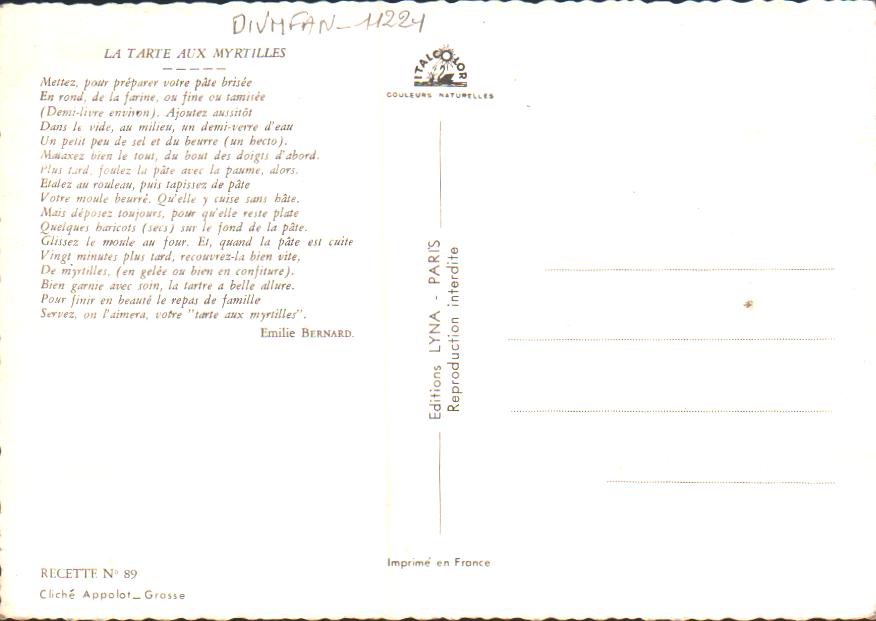 DIVMFAN_11224
LA TARTE AUX MYRTILLES
Mettez, pour préparer votre pâte brisée
En rond, de la farine, ou fine ou tamisée
(Demi-livre environ). Ajoutez aussitôt
Dans le vide, au milieu, un demi-verre d'eau
Un petit peu de sel et du beurre (un hecto).
Malaxez bien le tout, du bout des doigts d'abord.
Plus tard, foulez la pâte avec la paume, alors.
Etalez au rouleau, puis tapissez de pâte
Votre moule beurré. Qu'elle y cuise sans hâte.
Mais déposez toujours, pour qu'elle reste plate
Quelques haricots (secs) sur le fond de la pâte.
Glissez le moule au four. Et, quand la pâte est cuite
Vingt minutes plus tard, recouvrez-la bien vite,
De myrtilles, (en gelée ou bien en confiture).
Bien garnie avec soin, la tartre a belle allure.
Pour finir en beauté le repas de famille
Servez, on l'aimera, votre "tarte aux myrtilles".
Emilie BERNARD.
RECETTE N° 89
Cliché Appolot_Grasse
ITALCOLOR
COULEURS NATURELLES
Editions LYNA - PARIS
Reproduction interdite
Imprimé en France